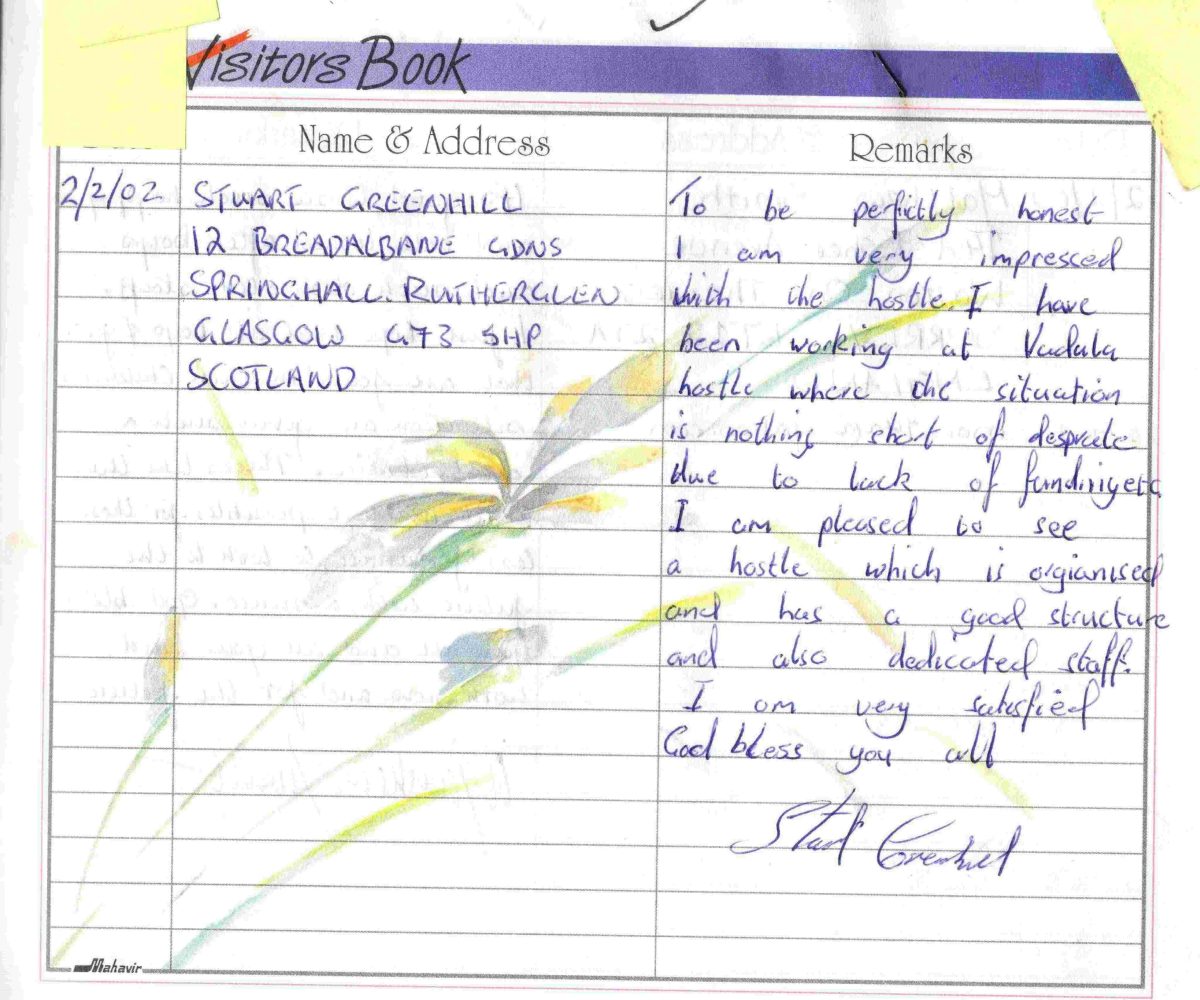 Visitors Book
Name & Address
Remarks
2/2/02
STUART GREENHILL
12 BREADALBANE GDNS
SPRINGHALL. RUTHERGLEN
GLASGOW G73 5HP
SCOTLAND
To be perfictly honest
I am very impressed
with the hostle. I have
been working at Vadala
hostle where the situation
is nothing short of desprate
due to lack of funding etc
I am pleased to see
a hostle which is orgianised
and has a good structure
and also dedicated staff.
I am very satisfied
God bless you all
Stuart Greenhill
Mahavir